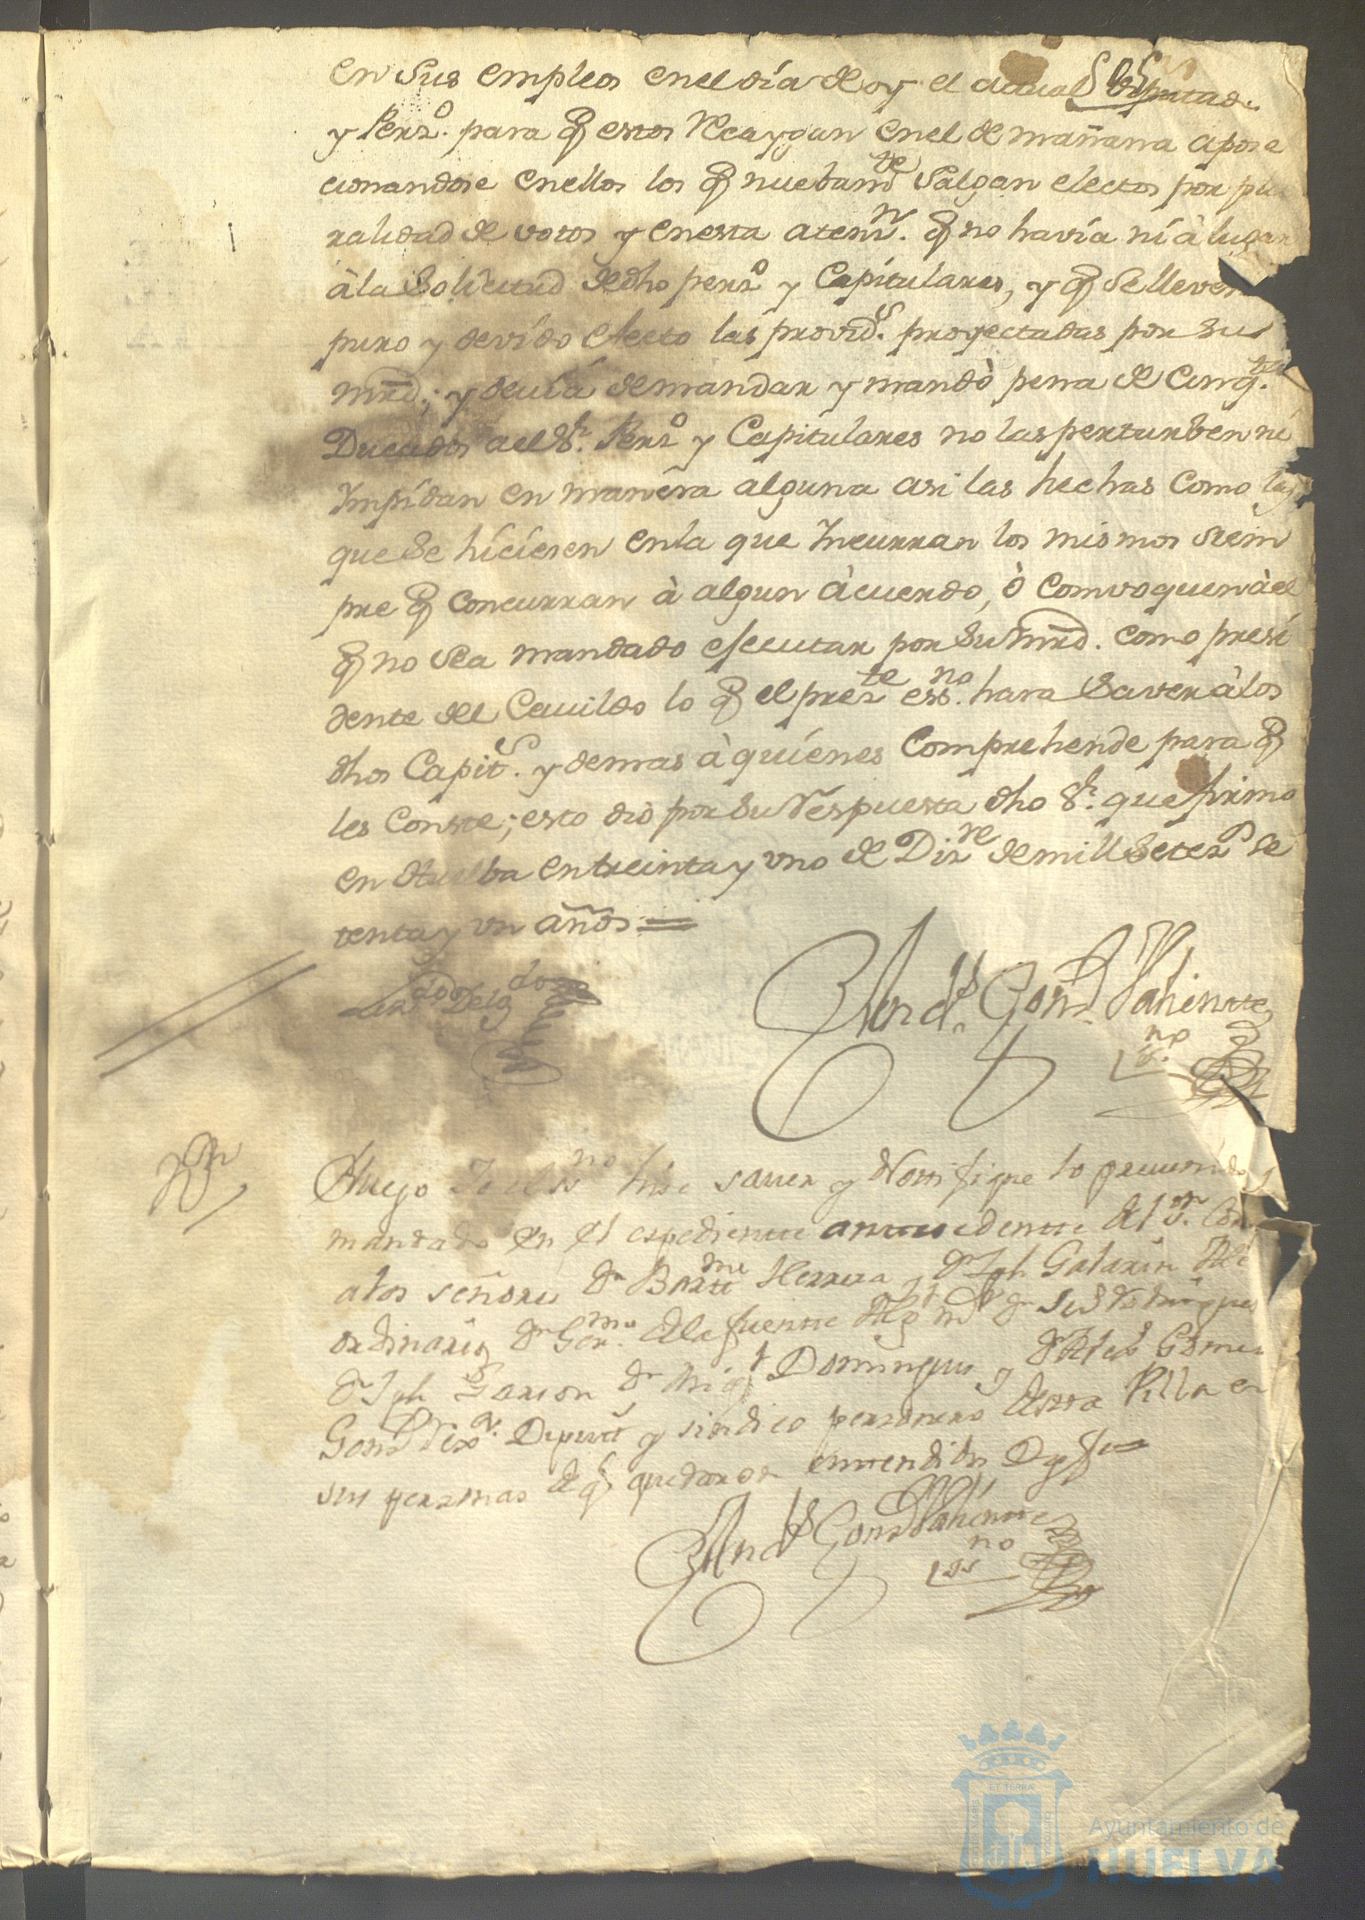 en sus empleos en el día de oy el actual Diputado
y Perzo. para q estos recaygan en el de mañana apose
cionandose en ellos los q nuebamte salgan electos por plu
ralidad de votos y en esta atenzn. q no havía ni à lugar
à la solicitud de dho perzo y Capitulares, y q se lleven
puro y devído efecto las provids. proyectadas por su
mrd; y devía de mandar y mandò pena de cinqta.
Ducados a el Sr. Perzo y Capitulares no las perturben ni
Impídan en manera alguna asi las hechas como las
que se hícíeren en la que Incurran los mismos siem
pre q concurran à algun àcuerdo, ò comvoquen à el
q no sea mandado efecutar por su mrd. como presi
dente del Cavildo lo q el prezte essno. hara saver à los
dhos Capits. y demas à quíenes comprehende para q
les conste; esto dió por su respuesta dho Sr. que firmo
en Huelba en treinta y uno de Dizre de mill setezs se
tenta y un años =
Lizdo Delgdo
Andrs. Gonz Vahiente
no
Luego Yo el essno hise saver y Notifique lo
mandado en el espediente antecedente al Sr.
a los señores Dn Bartme Herrera y Dn Jph Galaxin
ordinarios Dn Germo de la fuente
Dn Jph Garzon Dn Migl Domingues y Gomes
Diputs y sindico personero de esta Villa en
sus personas de q quedaron entendidos Doy fe =
Andrs Gonz Vahiente
no
Ayuntamiento de
HUELVA